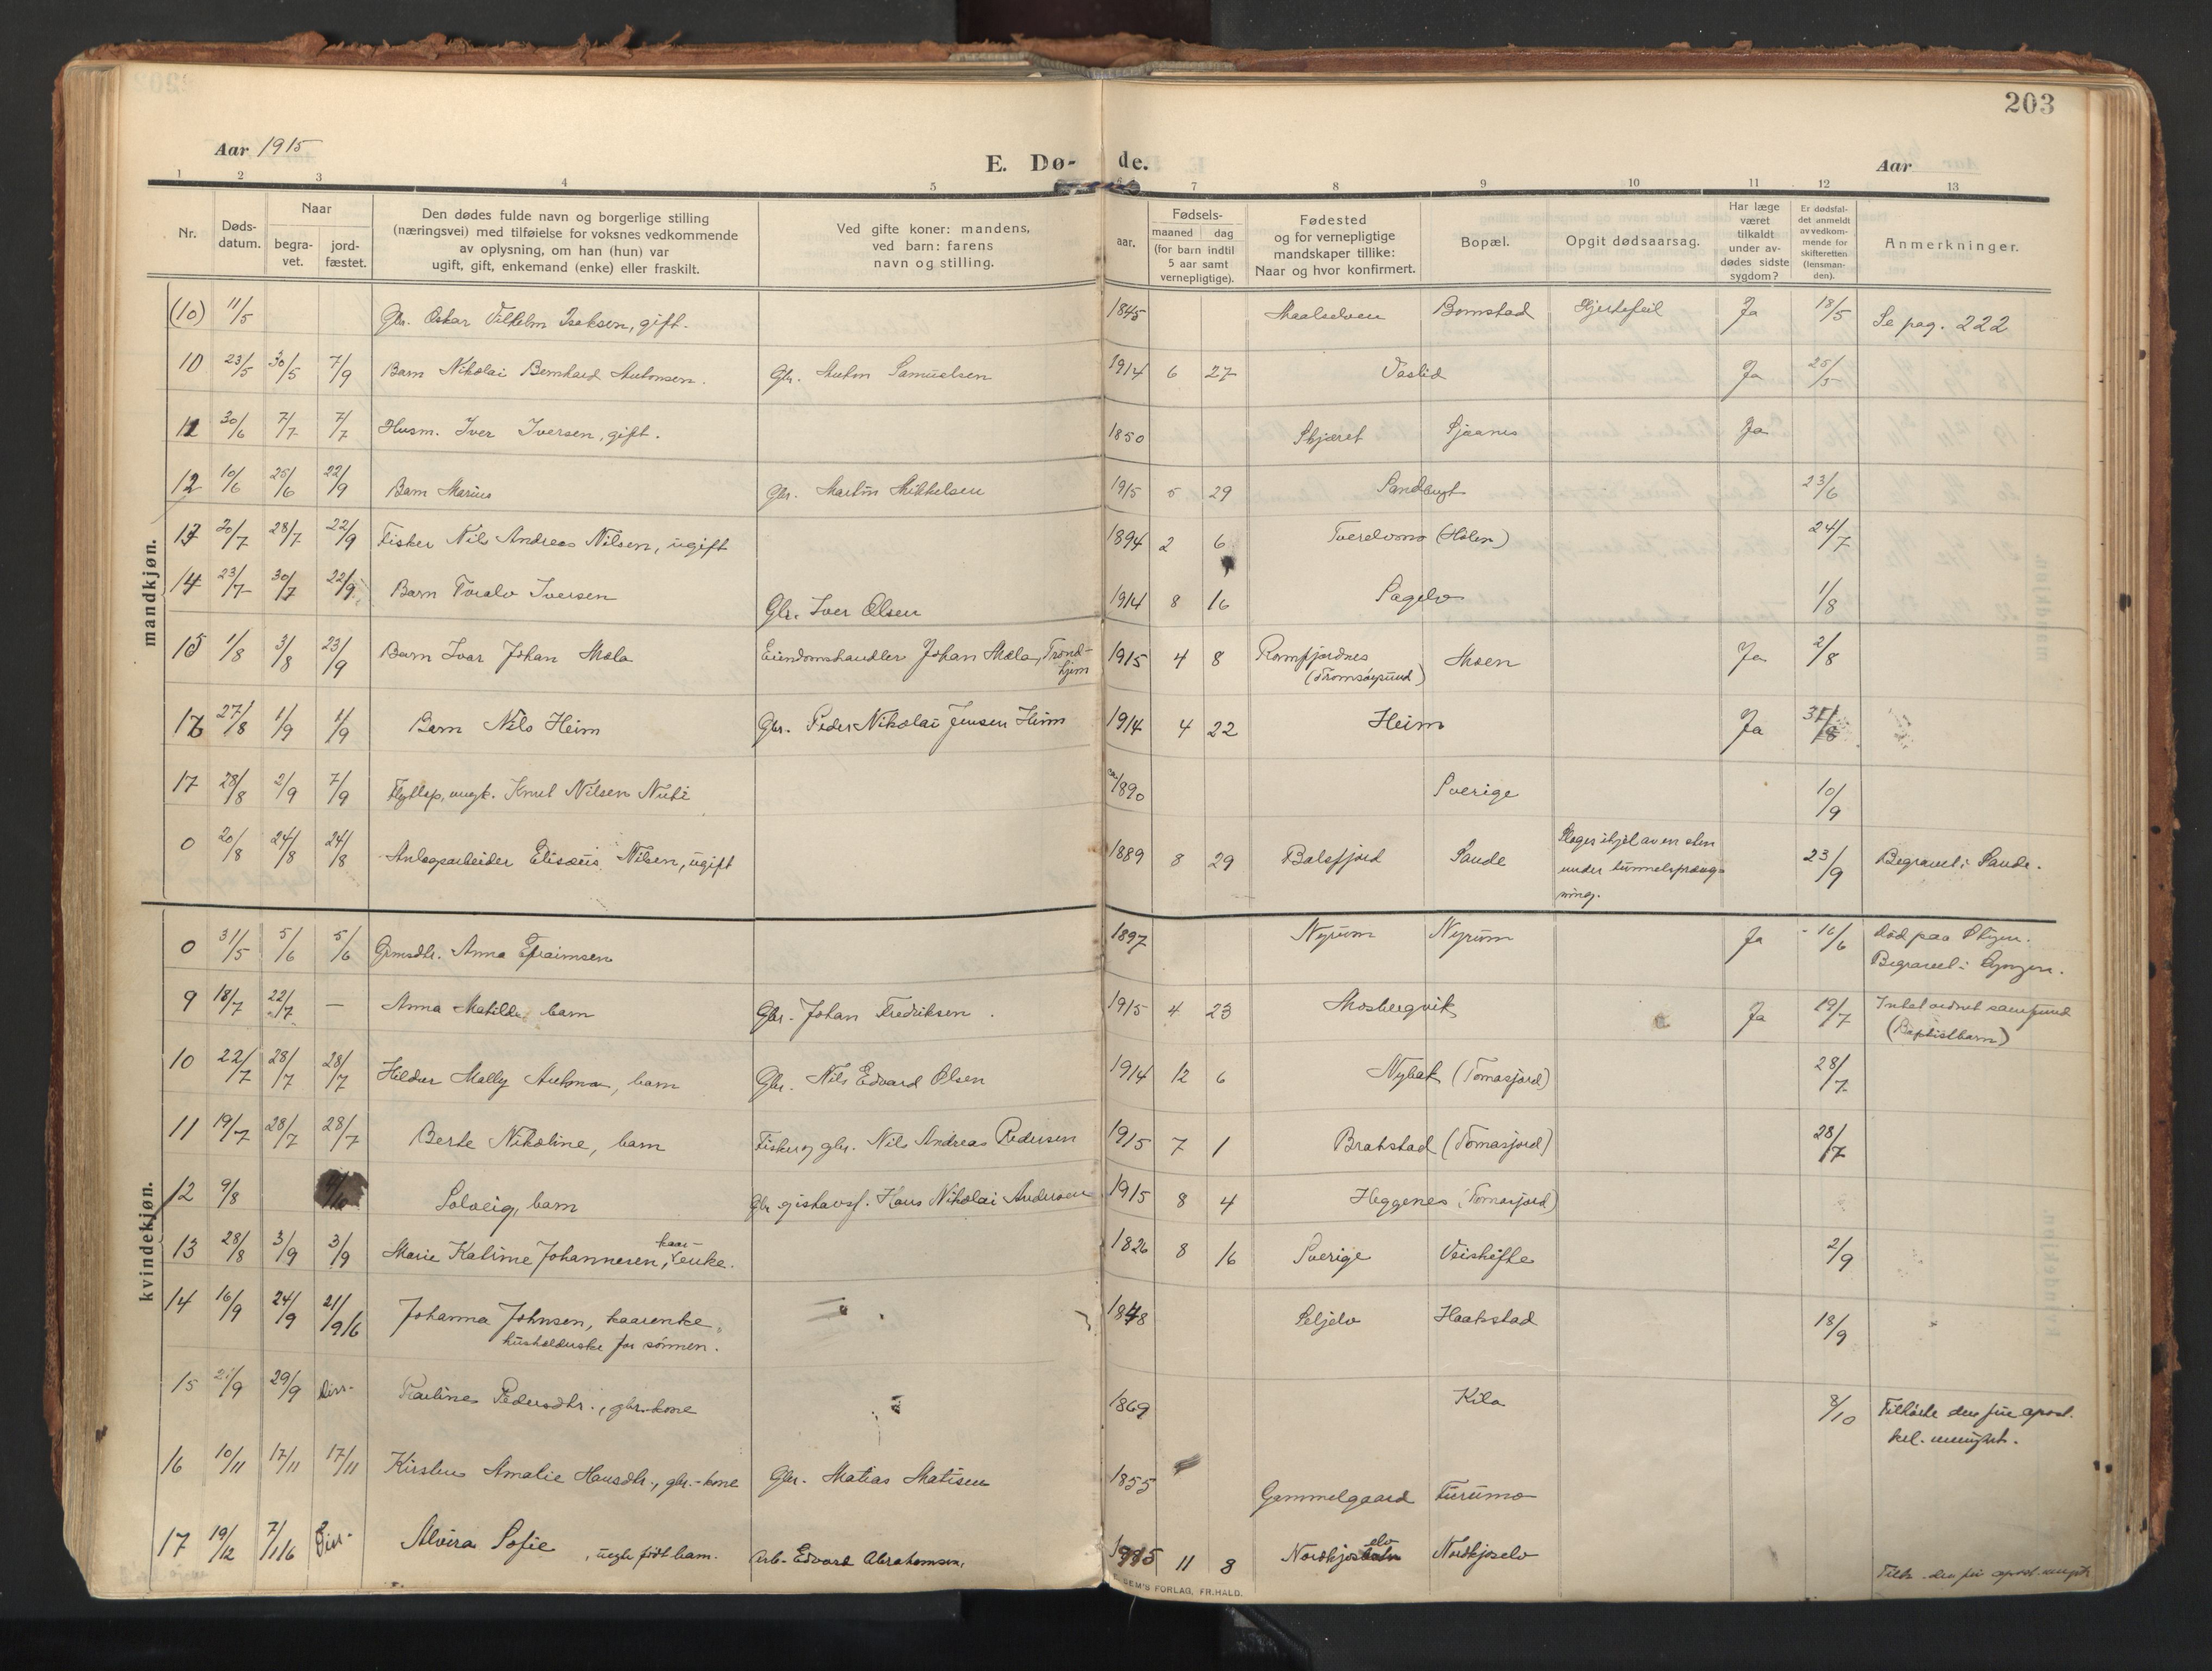 203
Aar 1915
E. Dø-
de.
Aar
1 2 3 4 5 7 8 9 10 11 12 13
Nr.
Døds-
datum.
Naar
begra-
vet.
jord-
fæstet.
Den dødes fulde navn og borgerlige stilling
(næringsvei) med tilføielse for voksnes vedkommende
av oplysning, om han (hun) var
ugift, gift, enkemand (enke) eller fraskilt.
Ved gifte koner: mandens,
ved barn: farens
navn og stilling.
aar.
Fødsels-
maaned dag
(for barn indtil
5 aar samt
vernepligtige).
Fødested
og for vernepligtige
mandskaper tillike:
Naar og hvor konfirmert.
Bopæl.
Opgit dødsaarsag.
Har læge
været
tilkaldt
under av-
dødes sidste
sygdom?
Er dødsfal-
det anmeldt
av vedkom-
mende for
skifteretten
(lensman-
den).
Anmerkninger.
mandkjøn.
(10) 11/5 Gbr. Oskar Vilhelm Isaksen, gift. 1845 Maalselven Bomstad Hjertefeil Ja 18/5 Se pag. 222
10 23/5 30/5 7/9 Barn Nikolai Bernhard Antonsen. Gbr. Anton Samuelsen 1914 6 27 Vaslid Ja 25/5
11 30/6 7/7 7/7 Husm. Iver Iversen, gift. 1850 Skjæret Sjaanes Ja
12 10/6 25/6 22/9 Barn Marius Gbr. Martin Mikkelsen 1915 5 29 Sandbugt 23/6
13 20/7 28/7 22/9 Fisker Nils Andreas Nilsen, ugift 1894 2 6 Tverelvmo (Holen) 24/7
14 23/7 30/7 22/9 Barn Toralv Iversen Gbr. Iver Olsen 1914 8 16 Sagelv 1/8
15 1/8 3/8 23/9 Barn Ivar Johan Mæla Eiendomshandler Johan Mæla, Trond-
hjem 1915 4 8 Ramfjordnes
(Tromsøysund) Moen Ja 2/8
16 27/8 1/9 1/9 Barn Nils Heim Gbr. Peder Nikolai Jensen Heim 1914 4 22 Heim Ja 31/8
17 28/8 2/9 7/9 Flytlap, ungk. Knut Nilsen Nuti ca. 1890 Sverige 10/9
0 20/8 24/8 24/8 Anlegsarbeider Elisæus Nilsen, ugift 1889 8 29 Balsfjord Sande Sloges ihjel av en sten
under tunnelspræng-
ning. 23/9 Begravet i Sande.
kvindekjøn.
0 31/5 5/6 5/6 Grmsdtr. Anna Efraimsen 1897 Nyrum Nyrum Ja 16/6 Død paa
Begravet i Lyngen.
9 18/7 22/7 — Anna Matilde barn Gbr. Johan Fredriksen. 1915 4 23 Mosbergvik Ja 19/7 Intet ordnet samfund
(Baptistbarn)
10 22/7 28/7 28/7 Hildur Mally Antona, barn Gbr. Nils Edvard Olsen 1914 12 6 Nybak (Tomasjord) 28/7
11 19/7 28/7 28/7 Berte Nikoline, barn Fisker og gbr. Nils Andreas Pedersen 1915 7 1 Bratstad (Tomasjord) 28/7
12 9/8 Solveig, barn Gbr. gjestavsf. Hans Nikolai Andersen 1915 8 4 Heggenes (Tomasjord)
13 28/8 3/9 3/9 Marie Katrine Johannesen, kaar-
enke. 1826 8 16 Sverige Veiskifte 2/9
14 16/9 24/9 21/9 16 Johanna Johnsen, kaarenke,
husholderske for sønnen. 1848 Seljelv Haakstad 18/9
15 21/9 29/9 Diss- Pauline Pedersdtr., gbr.kone 1869 Kila 8/10 Tilhørte den frie apost.
kel. menighet.
16 10/11 17/11 17/11 Kirsten Amalie Hansdtr., gbr.-kone Gbr. Matias Matisen 1855 Gammelgaard Furumo
17 19/12 7/1 16 Diss- Alvira Sofie, uegte født barn. Arb. Edvard Abrahamsen, 1915 11 8 Nordkjoselv Nordkjoselv
Tilh. den fri apost. mngh.
SEM'S FORLAG, FR.HALD.